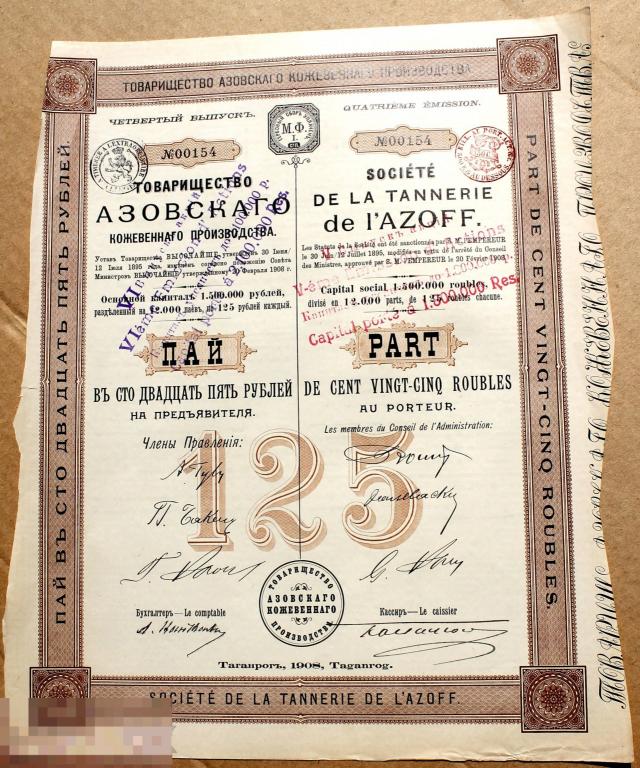 ТОВАРИЩЕСТВО АЗОВСКАГО КОЖЕВЕННАГО ПРОИЗВОДСТВА
ЧЕТВЕРТЫЙ ВЫПУСКЪ.
№00154
ТОВАРИЩЕСТВО
АЗОВСКАГО
КОЖЕВЕННАГО ПРОИЗВОДСТВА.
Уставъ Товарищества ВЫСОЧАЙШЕ утвержденъ 30 Іюня/
12 Іюля 1895 года,
Министровъ ВЫСОЧАЙШЕ Февраля 1908 г.
Основной капиталъ 1.500.000 рублей,
раздѣленный на 12.000 паевъ по 125 рублей каждый.
ПАЙ
ВЪ СТО ДВАДЦАТЬ ПЯТЬ РУБЛЕЙ
НА ПРЕДЪЯВИТЕЛЯ.
Члены Правленія:
Бухгалтеръ — Le comptable
М.Ф.
QUATRIÈME ÉMISSION.
№00154
SOCIÉTÉ
DE LA TANNERIE
de l'AZOFF.
Les Statuts de la Société ont été sanctionnés par S. M. l'EMPEREUR
le 30 Juin/12 Juillet 1895, modifiés en vertu de l'arrêté du Conseil
des Ministres, approuvé par S. M. l'EMPEREUR le 20 Février 1908.
Capital social 1.500.000 roubles
divisé en 12.000 parts, de 125 roubles chacune.
PART
DE CENT VINGT-CINQ ROUBLES
AU PORTEUR.
Les membres du Conseil d'Administration:
Кассиръ — Le caissier
125
VI-ème émission d'actions
Capital porté à 2.000.000 Ros.
V-ème émission d'actions
Capital porté à 1.500.000. Ros.
ТОВАРИЩЕСТВО
АЗОВСКАГО
КОЖЕВЕННАГО
ПРОИЗВОДСТВА
Таганрогъ, 1908, Taganrog.
SOCIÉTÉ DE LA TANNERIE DE L'AZOFF.
ПАЙ ВЪ СТО ДВАДЦАТЬ ПЯТЬ РУБЛЕЙ.
PART DE CENT VINGT-CINQ ROUBLES.